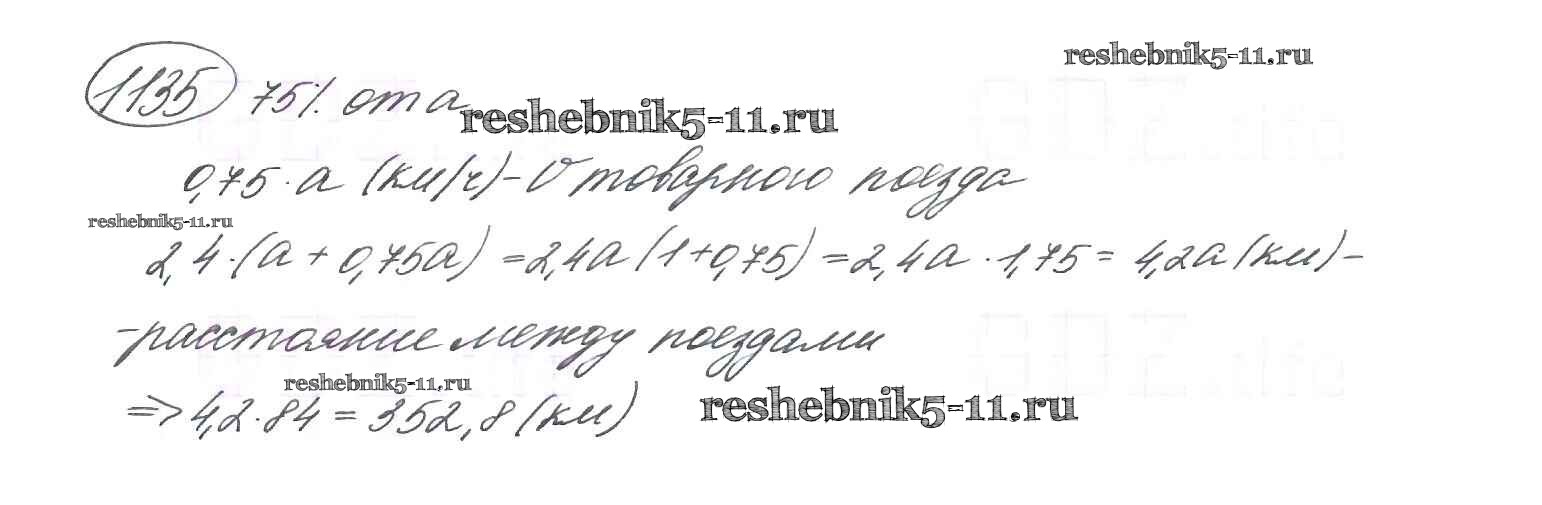 reshebnik5-11.ru
1135 75% от a
reshebnik5-11.ru
0,75 · a (км/ч) - V товарного поезда
reshebnik5-11.ru
2,4 · (a + 0,75a) = 2,4a (1+0,75) = 2,4a · 1,75 = 4,2a (км) -
- расстояние между поездами
reshebnik5-11.ru
=> 4,2 · 84 = 352,8 (км)
reshebnik5-11.ru